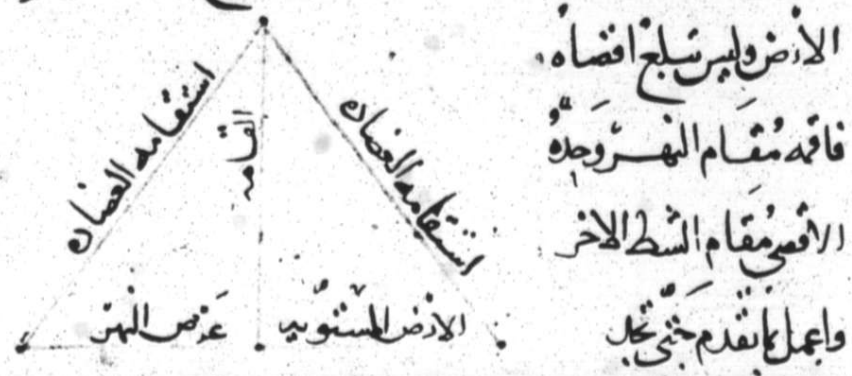 الأرض وليس تبلغ اقصاه
فاقمه مُقَام النهر وَحدّهُ
الاقصى مُقام الشط الاخر
واعمل بما تقدم حتّى تجد
استقامه العضاده
القامه
استقامه العضاده
عرض النهر
الارض المستويه